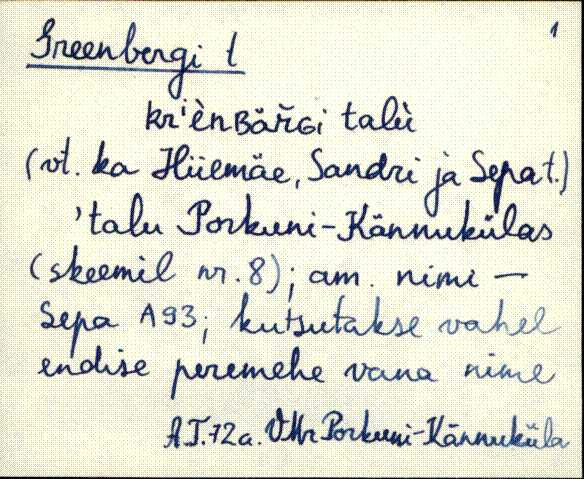 1
Greenbergi t
kr'ènBäřGi talù
(vt. ka Hiiemäe, Sandri ja Sepa t.)
'talu Porkuni-Kännukülas
(skeemil nr. 8); am. nimi —
Sepa A93; kutsutakse vahel
endise peremehe vana nime
A.T. 72 a. VMr Porkuni-Kännuküla